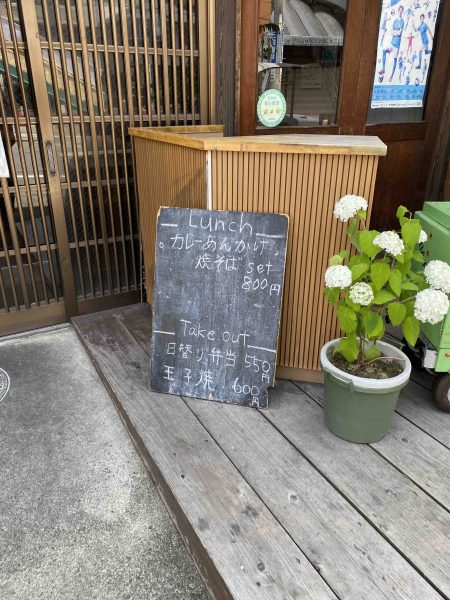 Lunch
。カレーあんかけ
焼そば set
800円
Take out
日替り弁当 550円
玉子焼 600円